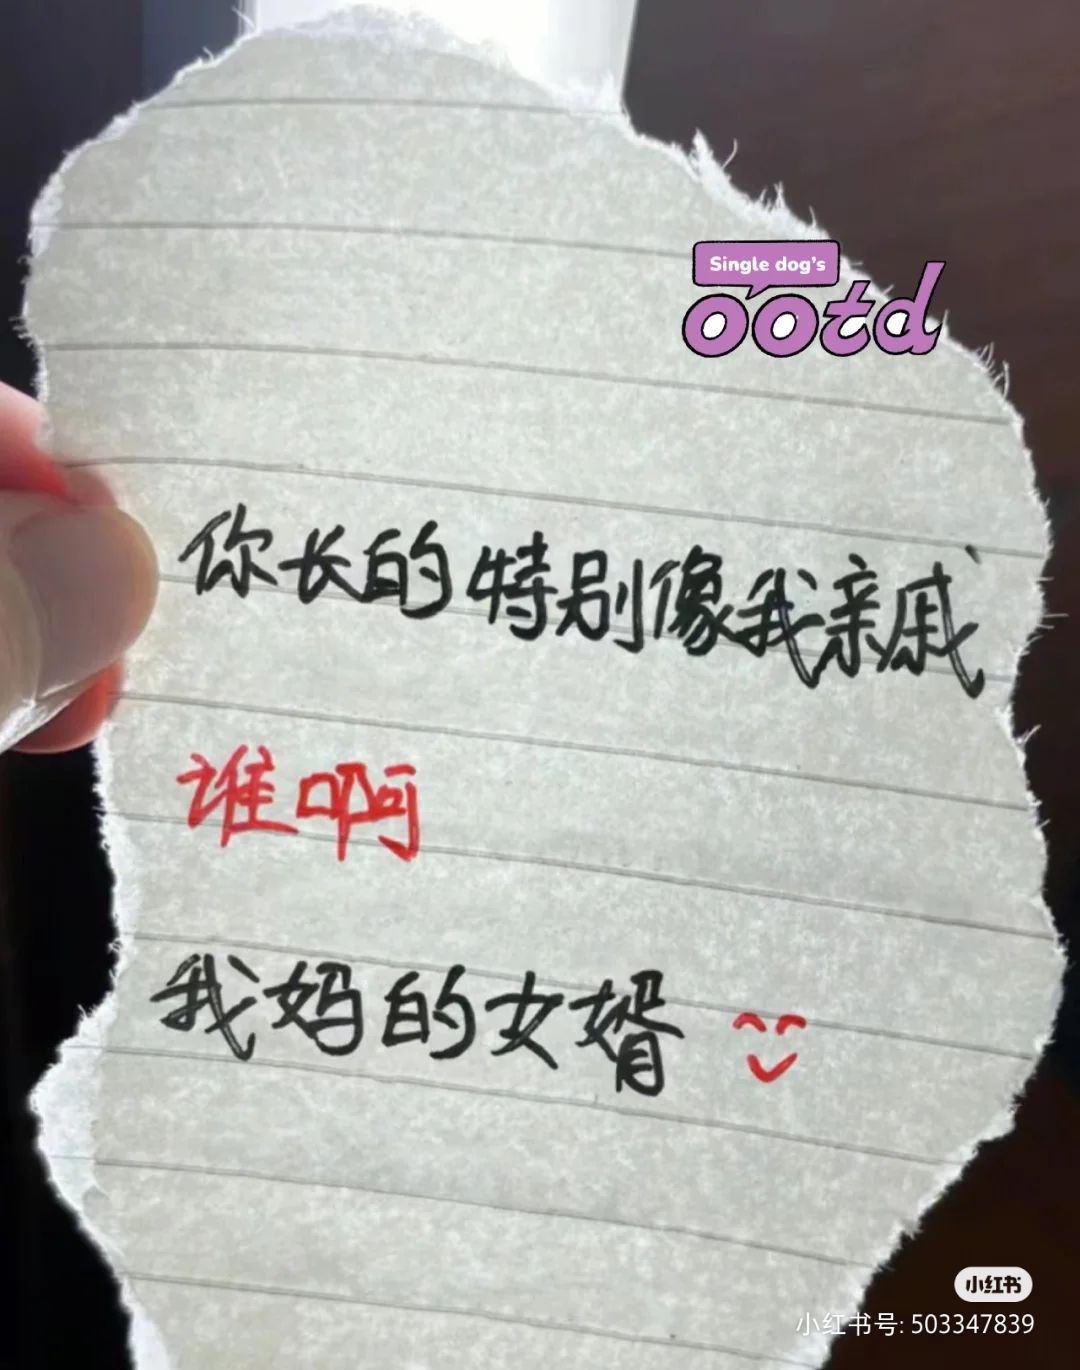 Single dog's
ootd
你长的特别像我亲戚
谁啊
我妈的女婿
小红书
小红书号: 503347839